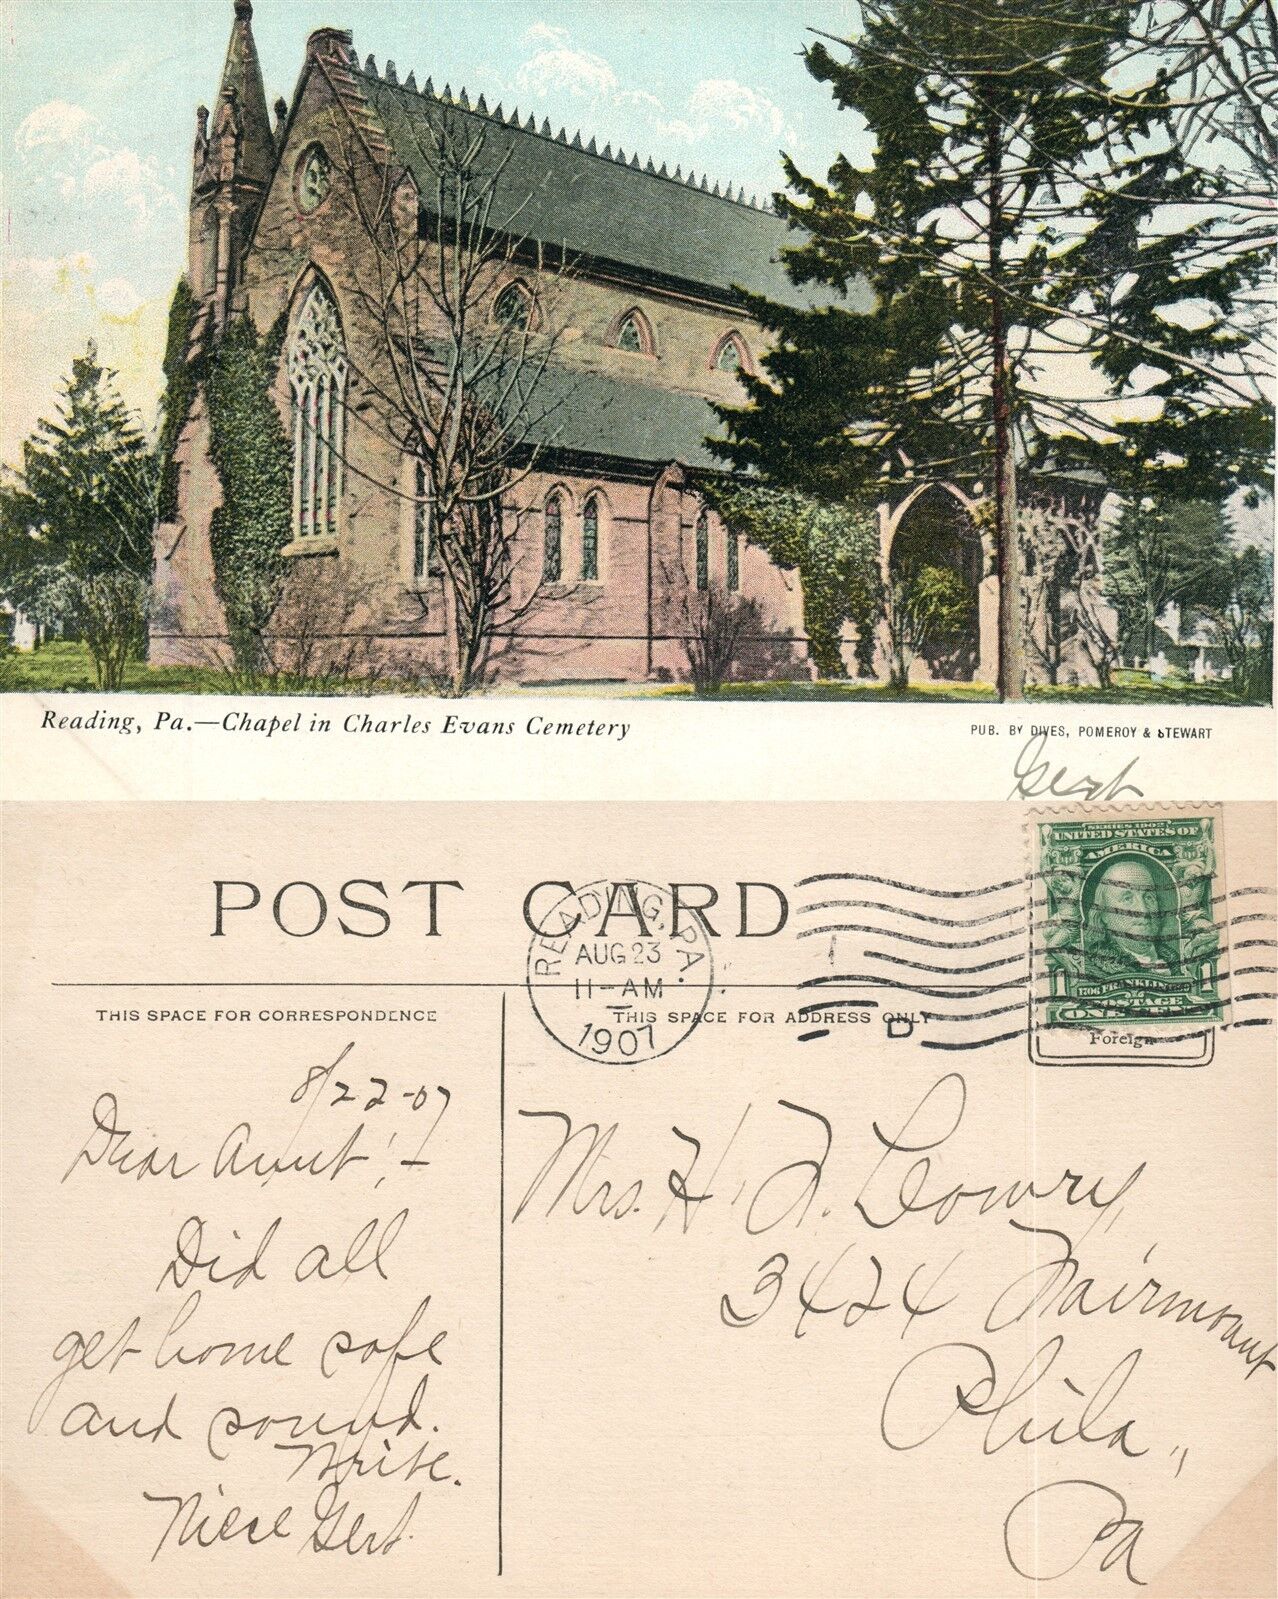 Reading, Pa.—Chapel in Charles Evans Cemetery
PUB. BY DIVES, POMEROY & STEWART
Gert
POST CARD
READING, PA.
AUG 23
11-AM
1907
D
SERIES 1902
UNITED STATES OF
AMERICA
1 1
1706 FRANKLIN 1790
POSTAGE
ONE CENT
Foreign
THIS SPACE FOR CORRESPONDENCE
THIS SPACE FOR ADDRESS ONLY
8/22-07
Dear Aunt!,-
Did all
get home safe
and sound.
Write.
Niece Gert.
Mrs. H. F. Lowry,
3424 Fairmount
Phila.,
Pa